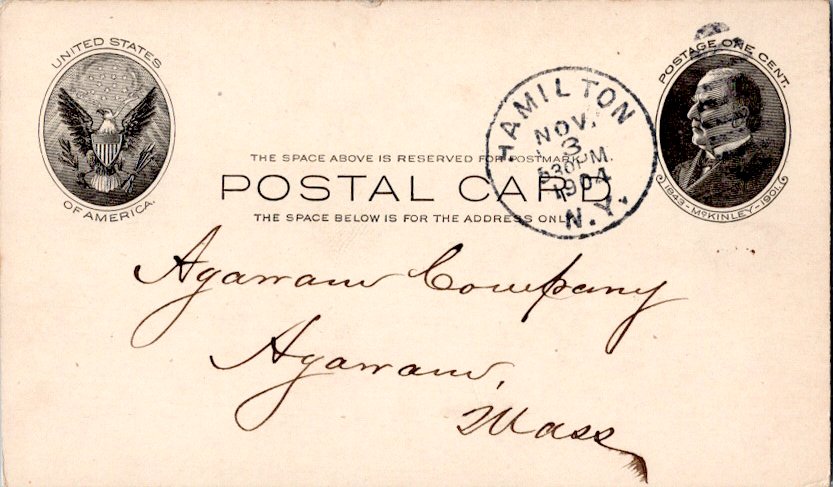 UNITED STATES
OF AMERICA.
POSTAGE ONE CENT.
1843-McKINLEY-1901.
HAMILTON
NOV.
3
530PM.
1904
N.Y.
THE SPACE ABOVE IS RESERVED FOR POSTMARK.
POSTAL CARD
THE SPACE BELOW IS FOR THE ADDRESS ONLY.
Agawam Company
Agawam,
Mass